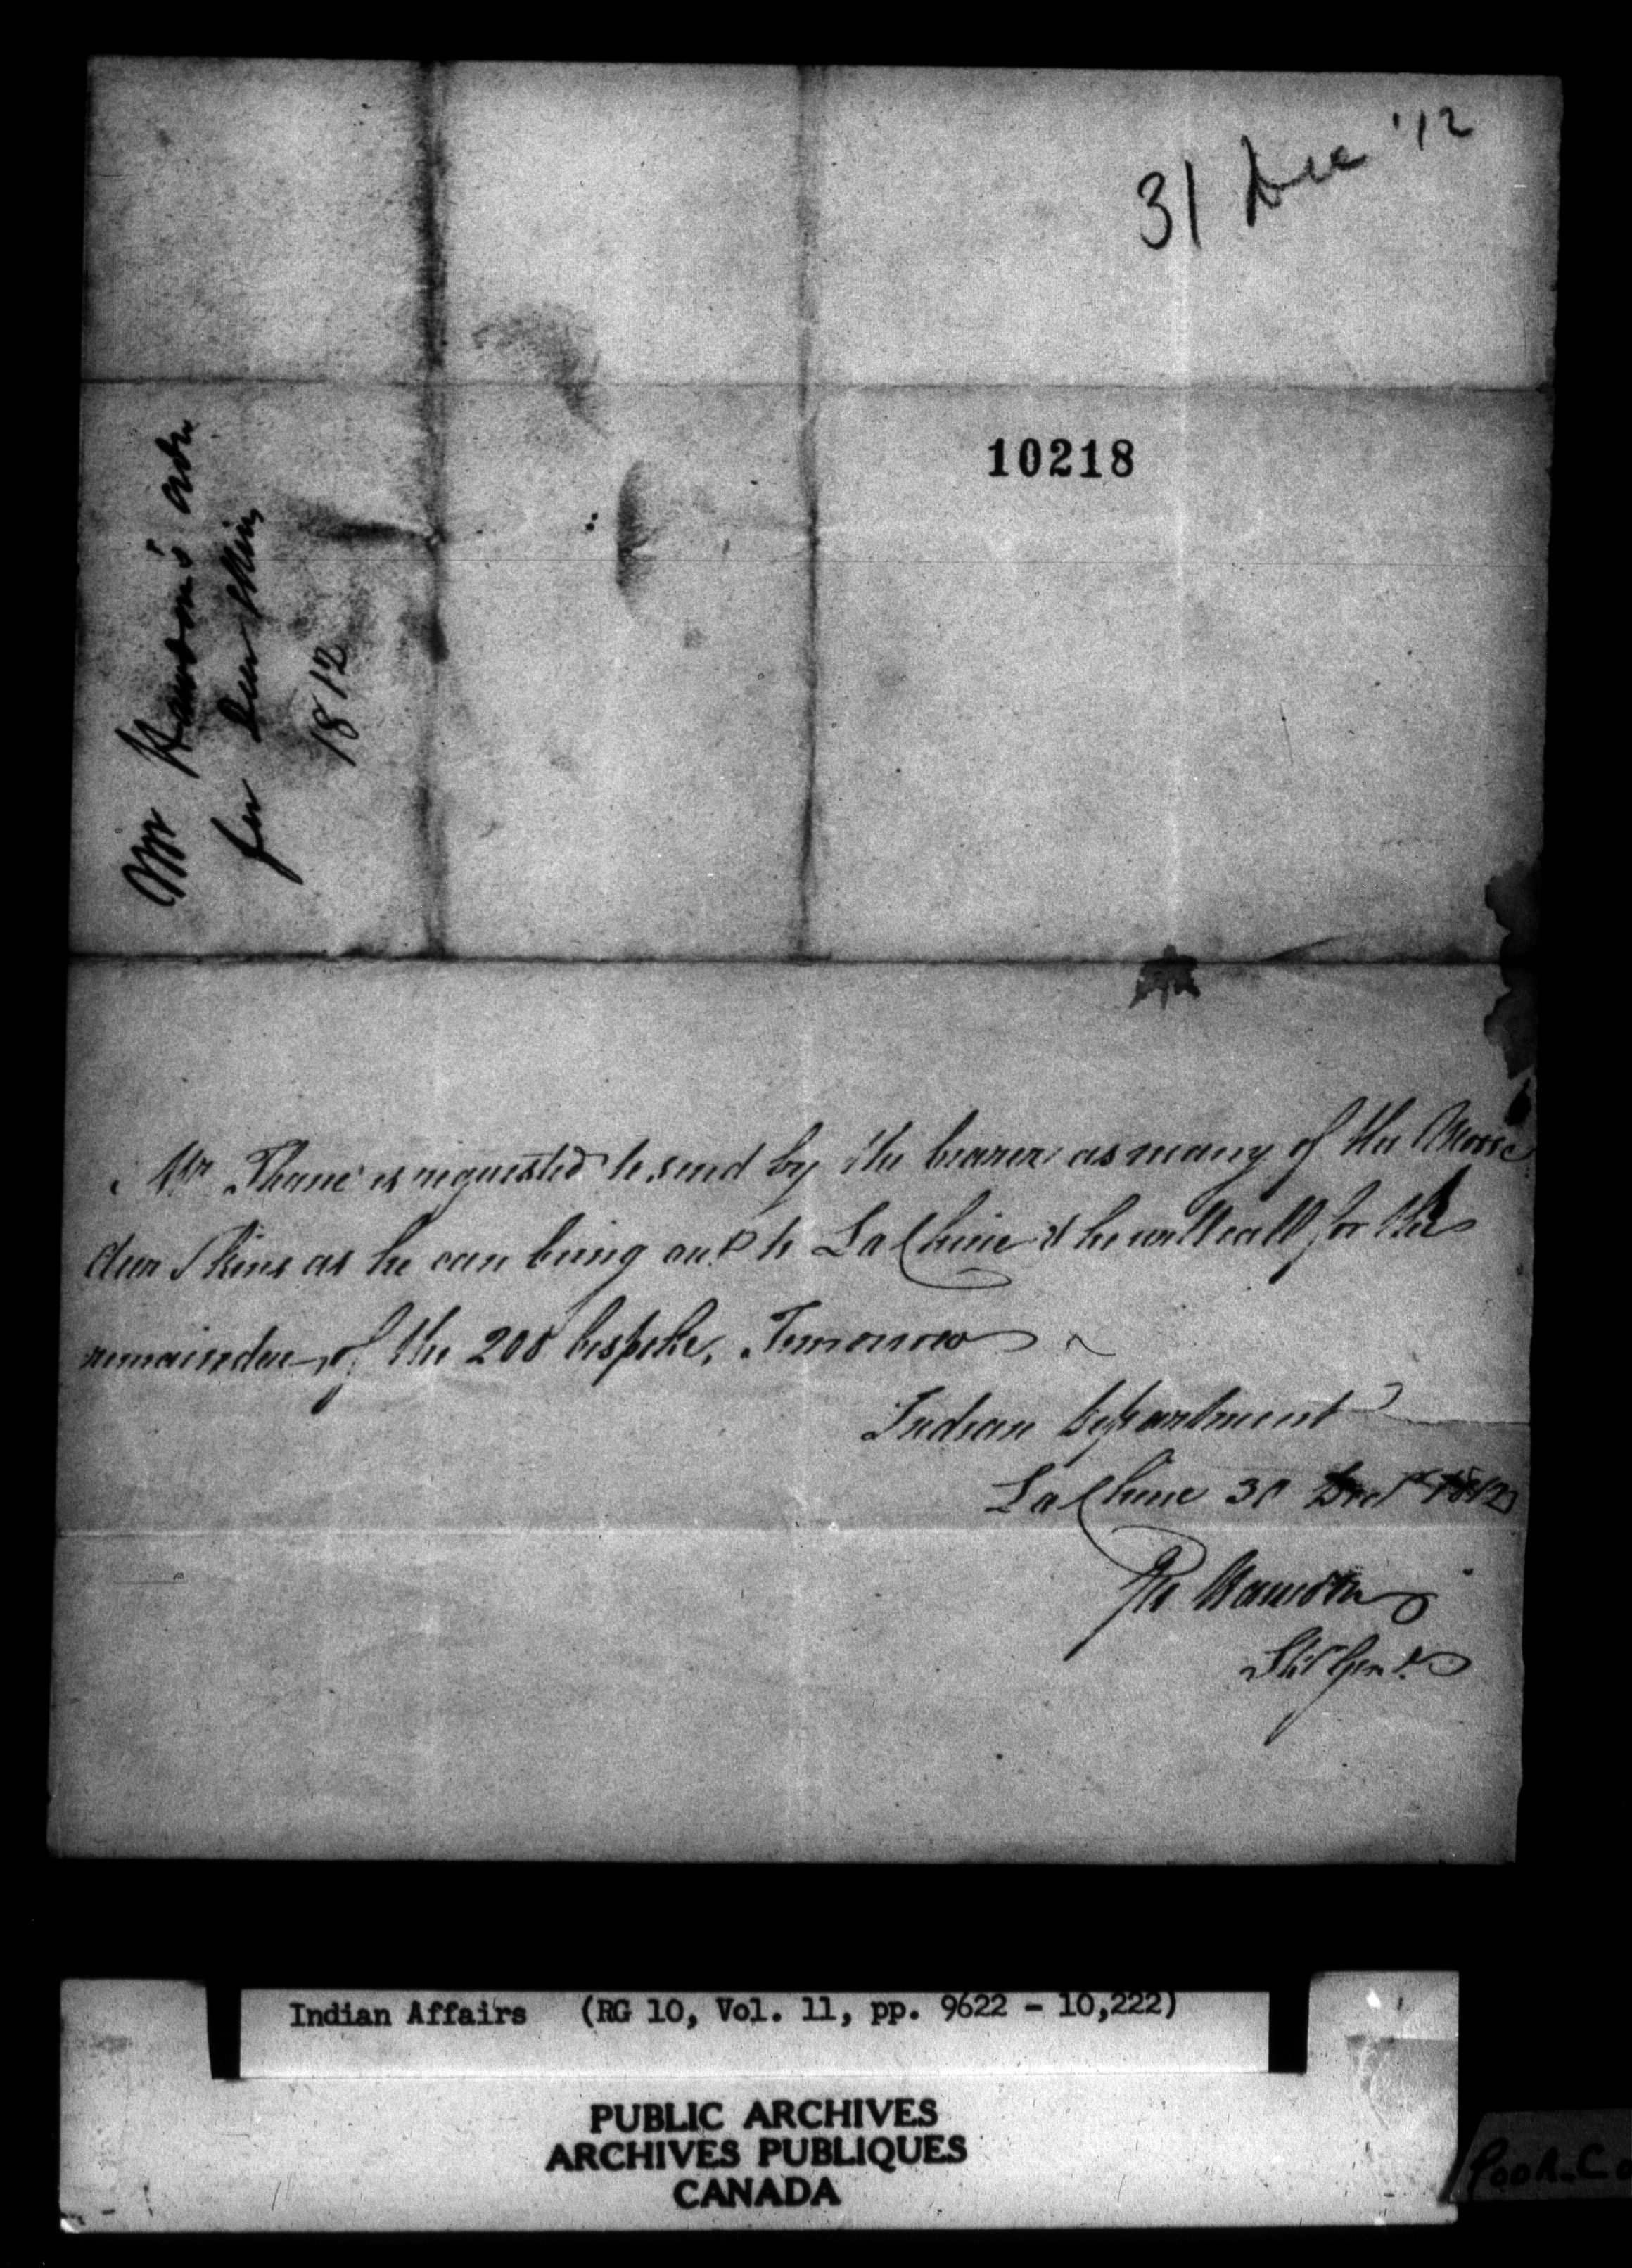 31 Dec '12
10218
Mr Hawdon's ord.
for Deer Skins
1812
Mr Thane is requested to send by the bearer as many of the Moose
deer Skins as he can bring out to LaChine & he will call for the
remainder of the 200 bespoke, Tomorrow
Indian Department
LaChine 31 Decr 1812
Hawdon
Indian Affairs (RG 10, Vol. 11, pp. 9622 - 10,222)
PUBLIC ARCHIVES
ARCHIVES PUBLIQUES
CANADA